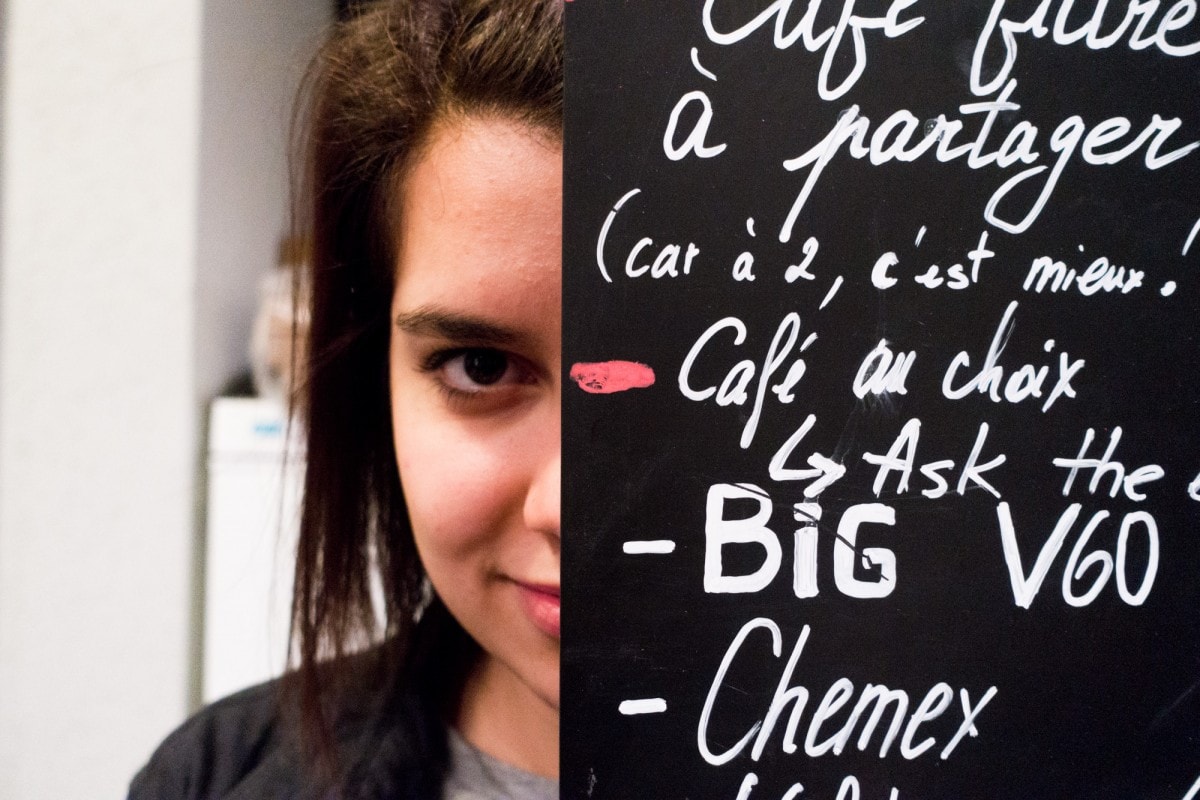 Café filtre
à partager
(car à 2, c'est mieux!
Café au choix
↳ Ask the
- BIG V60
- Chemex